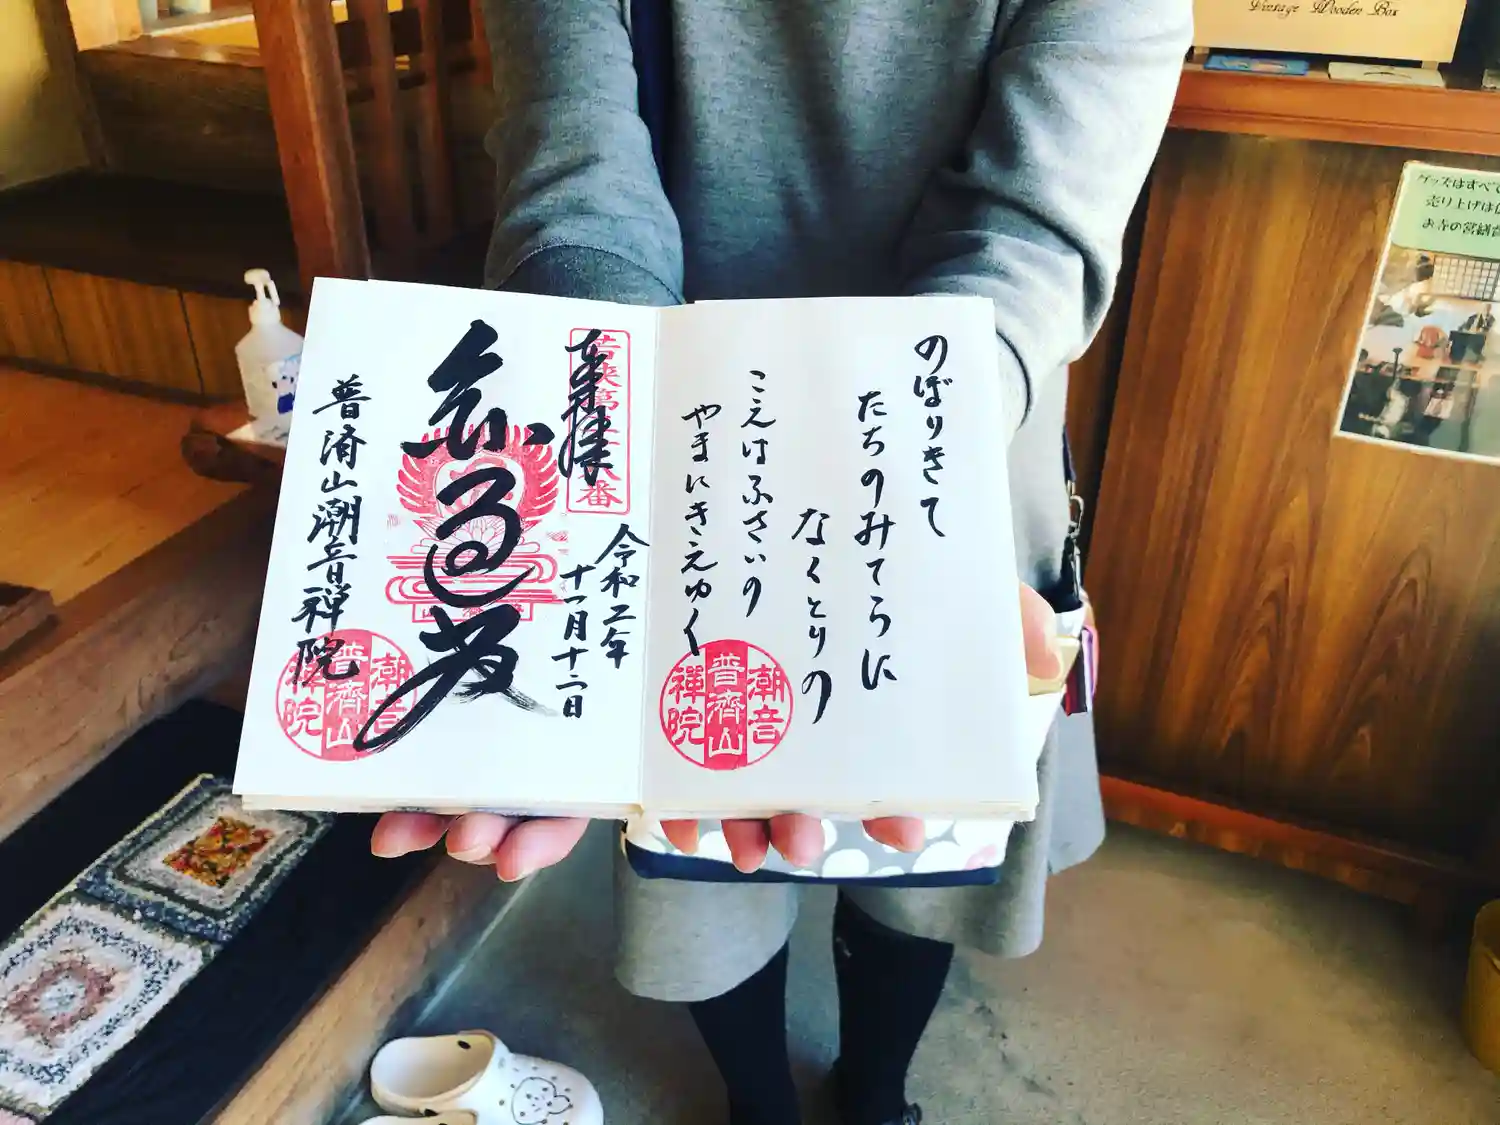 のぼりきて
たちのみてらに
なくとりの
こえはふさいの
やまにきえゆく
潮音
普濟山
禪院
奉拝
番
令和二年
十一月十二日
普済山潮音禅院
潮音
普濟山
禪院
Vintage Wooden Box
グッズはすべて
売り上げは
お寺の営繕